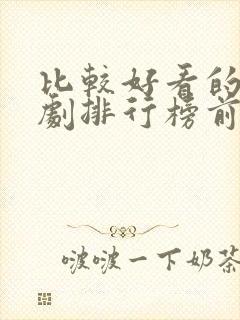 比較好看的
劇排行榜前
啵啵一下奶茶